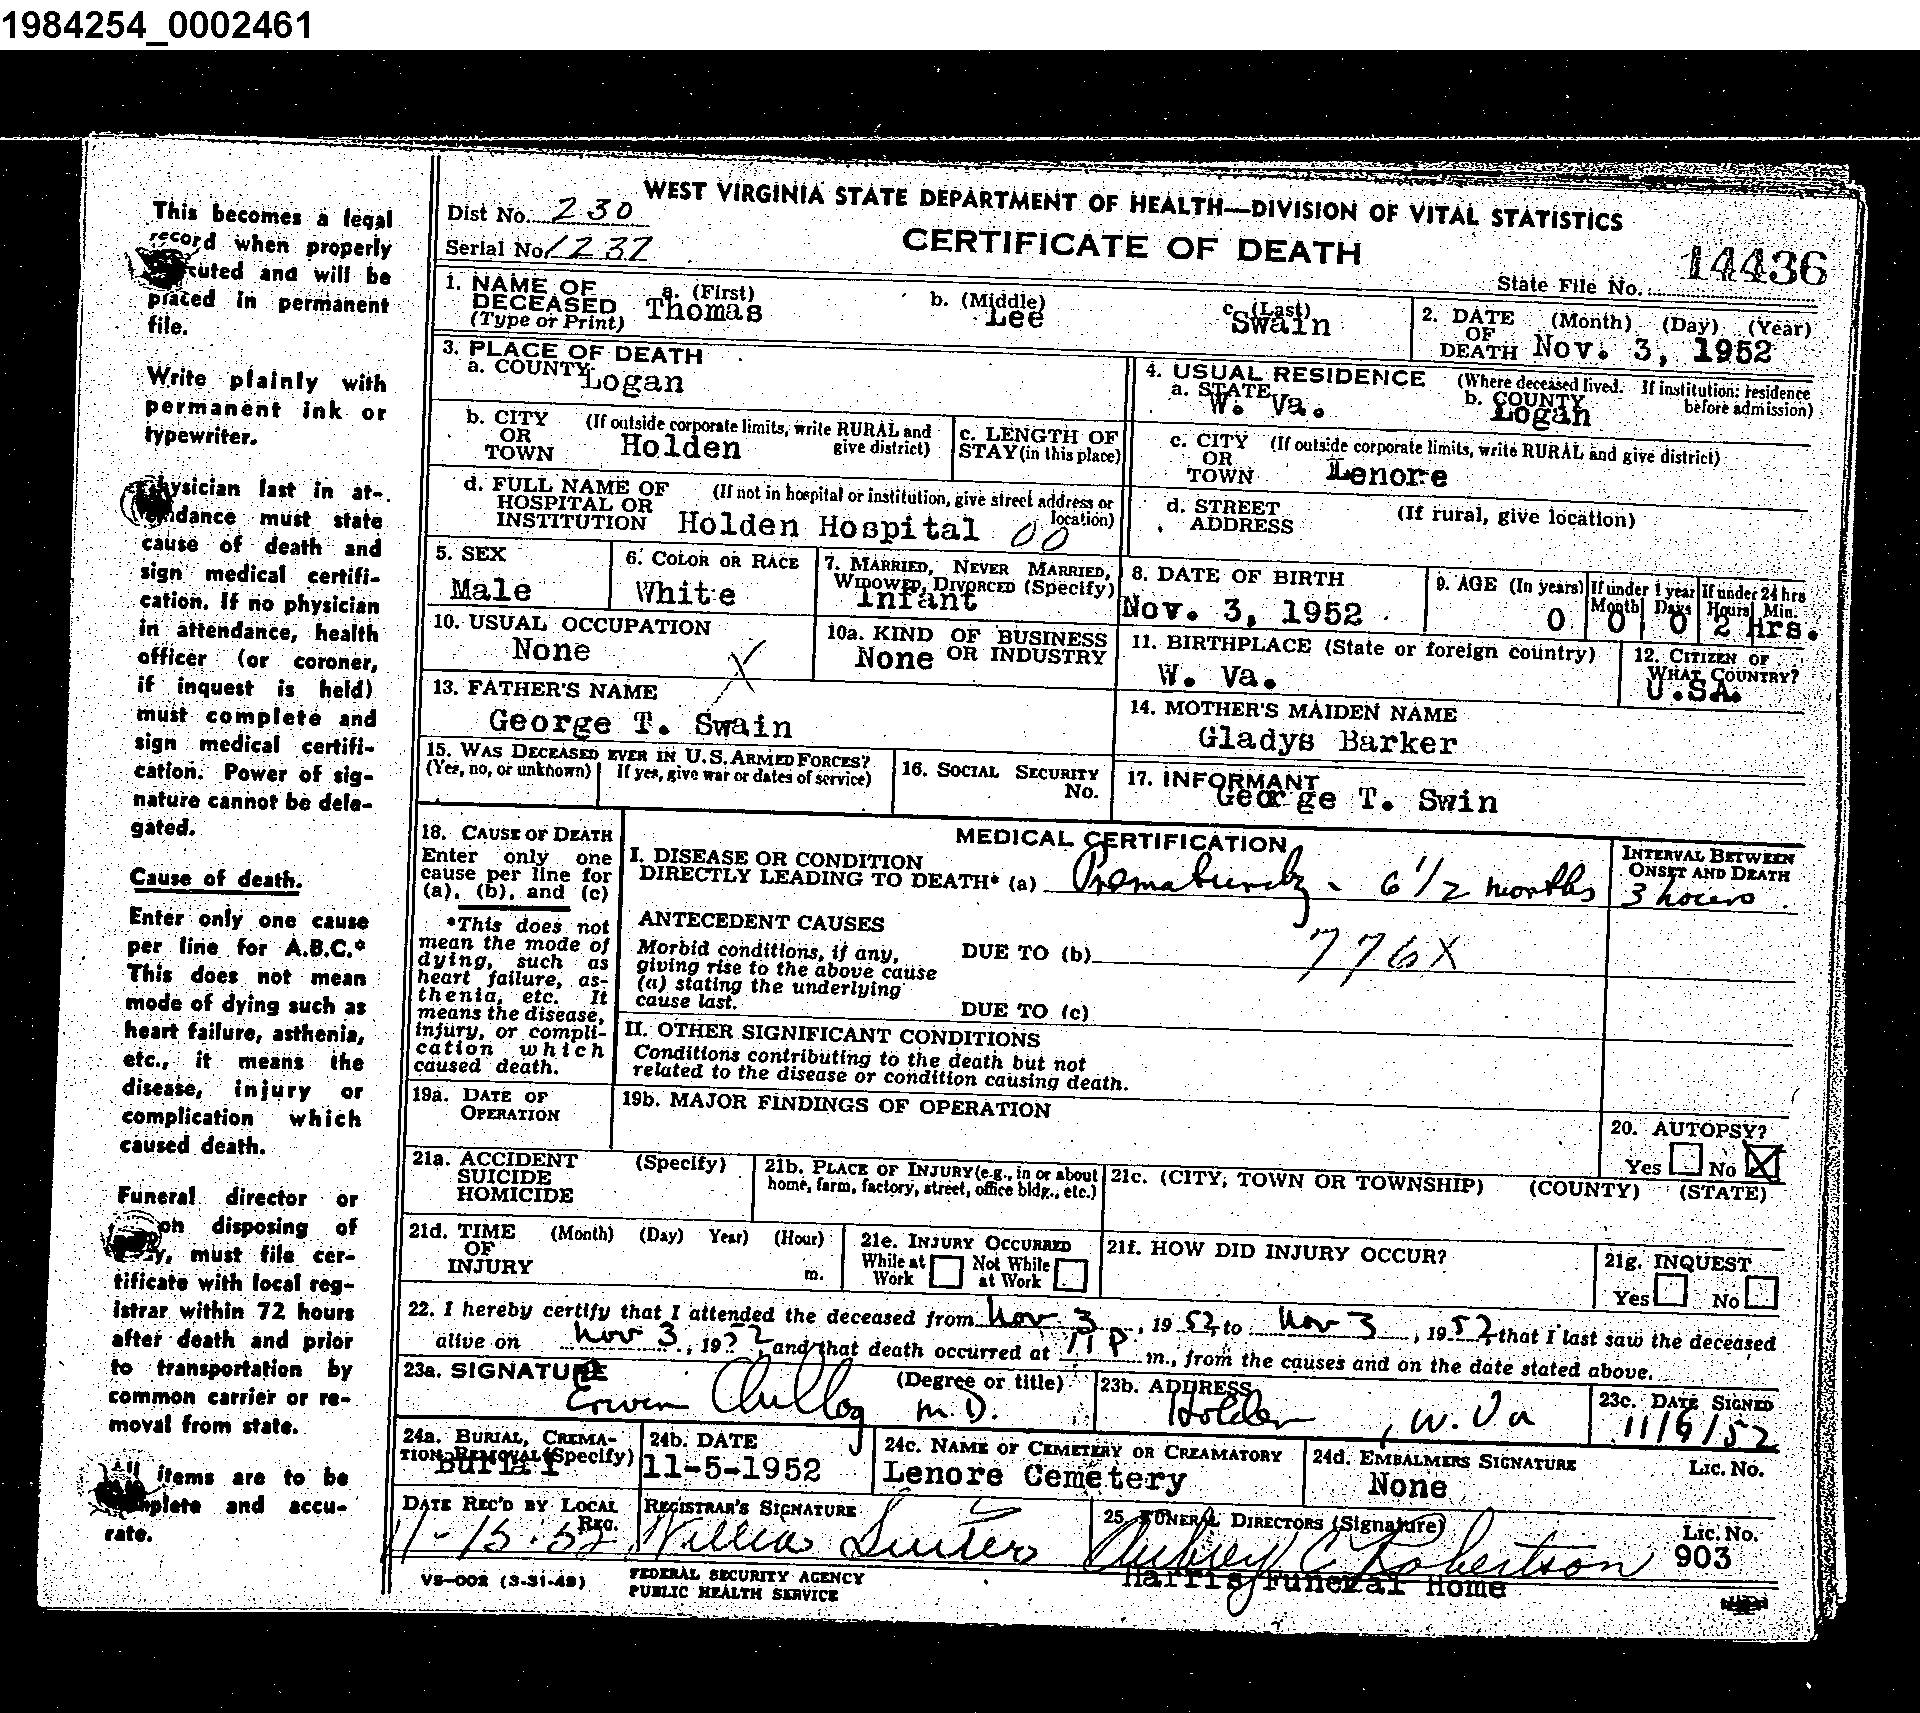 1984254_0002461
This becomes a legal
record when properly
cuted and will be
placed in permanent
file.
Write plainly with
permanent ink or
typewriter.
ysician last in at-
ndance must state
cause of death and
sign medical certifi-
cation. If no physician
in attendance, health
officer (or coroner,
if inquest is held)
must complete and
sign medical certifi-
cation. Power of sig-
nature cannot be dele-
gated.
Cause of death.
Enter only one cause
per line for A.B.C.*
This does not mean
mode of dying such as
heart failure, asthenia,
etc., it means the
disease, injury or
complication which
caused death.
Funeral director or
on disposing of
y, must file cer-
tificate with local reg-
istrar within 72 hours
after death and prior
to transportation by
common carrier or re-
moval from state.
All items are to be
mplete and accu-
rate.
WEST VIRGINIA STATE DEPARTMENT OF HEALTH—DIVISION OF VITAL STATISTICS
Dist No. 230
Serial No. 1237
CERTIFICATE OF DEATH
State File No. 14436
1. NAME OF DECEASED (Type or Print)
a. (First) Thomas
b. (Middle) Lee
c. (Last) Swain
2. DATE OF DEATH (Month) (Day) (Year)
Nov. 3, 1952
3. PLACE OF DEATH
a. COUNTY Logan
4. USUAL RESIDENCE (Where deceased lived. If institution: residence before admission)
a. STATE W. Va.
b. COUNTY Logan
b. CITY OR TOWN (If outside corporate limits, write RURAL and give district)
Holden
c. LENGTH OF STAY (in this place)
c. CITY OR TOWN (If outside corporate limits, write RURAL and give district)
Lenore
d. FULL NAME OF HOSPITAL OR INSTITUTION (If not in hospital or institution, give street address or location)
Holden Hospital 00
d. STREET ADDRESS (If rural, give location)
5. SEX
Male
6. COLOR OR RACE
White
7. MARRIED, NEVER MARRIED, WIDOWED, DIVORCED (Specify)
Infant
8. DATE OF BIRTH
Nov. 3, 1952
9. AGE (In years) If under 1 year If under 24 hrs
Month Days Hours Min.
0 0 0 2 Hrs.
10. USUAL OCCUPATION
None X
10a. KIND OF BUSINESS OR INDUSTRY
None
11. BIRTHPLACE (State or foreign country)
W. Va.
12. CITIZEN OF WHAT COUNTRY?
U.SA.
13. FATHER'S NAME
George T. Swain
14. MOTHER'S MAIDEN NAME
Gladys Barker
15. WAS DECEASED EVER IN U.S. ARMED FORCES?
(Yes, no, or unknown) If yes, give war or dates of service)
16. SOCIAL SECURITY No.
17. INFORMANT
George T. Swin
18. CAUSE OF DEATH
Enter only one
cause per line for
(a), (b), and (c)
*This does not
mean the mode of
dying, such as
heart failure, as-
thenia, etc. It
means the disease,
injury, or compli-
cation which
caused death.
MEDICAL CERTIFICATION
I. DISEASE OR CONDITION
DIRECTLY LEADING TO DEATH* (a) Prematurity - 6 1/2 months
INTERVAL BETWEEN ONSET AND DEATH
3 hours
ANTECEDENT CAUSES
Morbid conditions, if any,
giving rise to the above cause
(a) stating the underlying
cause last.
DUE TO (b)
776X
DUE TO (c)
II. OTHER SIGNIFICANT CONDITIONS
Conditions contributing to the death but not
related to the disease or condition causing death.
19a. DATE OF OPERATION
19b. MAJOR FINDINGS OF OPERATION
20. AUTOPSY?
Yes No X
21a. ACCIDENT SUICIDE HOMICIDE (Specify)
21b. PLACE OF INJURY (e.g., in or about home, farm, factory, street, office bldg., etc.)
21c. (CITY, TOWN OR TOWNSHIP) (COUNTY) (STATE)
21d. TIME OF INJURY (Month) (Day) Year) (Hour) m.
21e. INJURY OCCURRED
While at Work Not While at Work
21f. HOW DID INJURY OCCUR?
21g. INQUEST
Yes No
22. I hereby certify that I attended the deceased from Nov 3, 1952, to Nov 3, 1952, that I last saw the deceased
alive on Nov 3, 19 52, and that death occurred at 11 P m., from the causes and on the date stated above.
23a. SIGNATURE (Degree or title)
M.D.
23b. ADDRESS
Holden, W. Va
23c. DATE SIGNED
11/6/52
24a. BURIAL, CREMATION, REMOVAL (Specify)
Burial
24b. DATE
11-5-1952
24c. NAME OF CEMETERY OR CREAMATORY
Lenore Cemetery
24d. EMBALMERS SIGNATURE Lic. No.
None
DATE REC'D BY LOCAL REG.
11-15-52
REGISTRAR'S SIGNATURE
25. FUNERAL DIRECTORS (Signature) Lic. No.
Aubrey C Robertson 903
Harris Funeral Home
VS-002 (3-31-49)
FEDERAL SECURITY AGENCY
PUBLIC HEALTH SERVICE